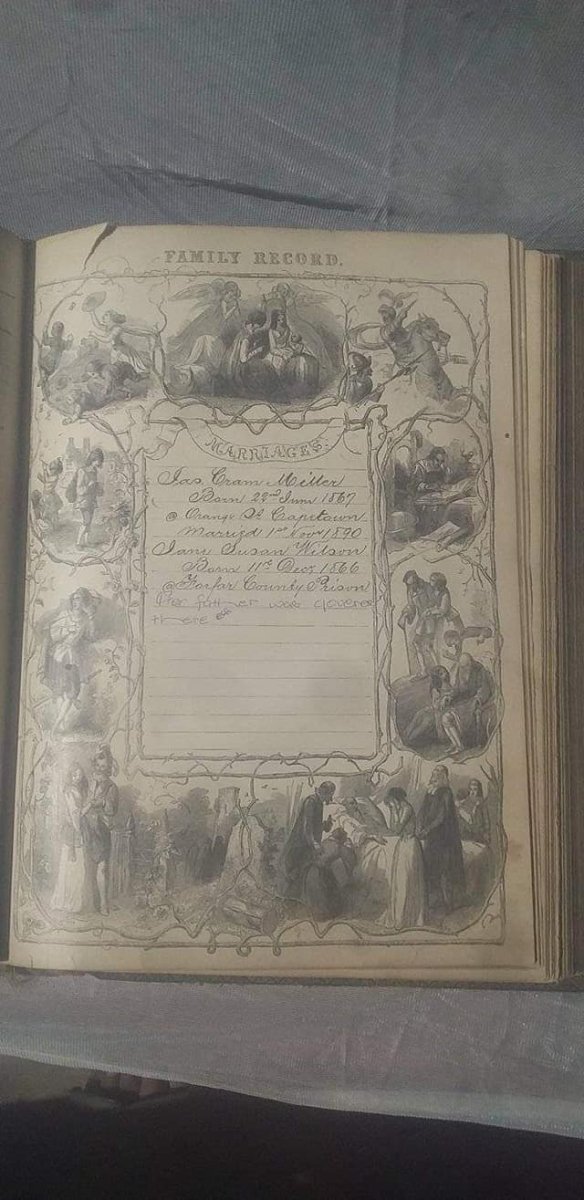 FAMILY RECORD.
MARRIAGES.
Jas Cram Miller
Born 22nd June 1867
@ Orange St Capetown
Married 1st Novr 1890
Jane Susan Wilson
Born 11th Decr 1866
@ Forfar County Prison
Her father was
there